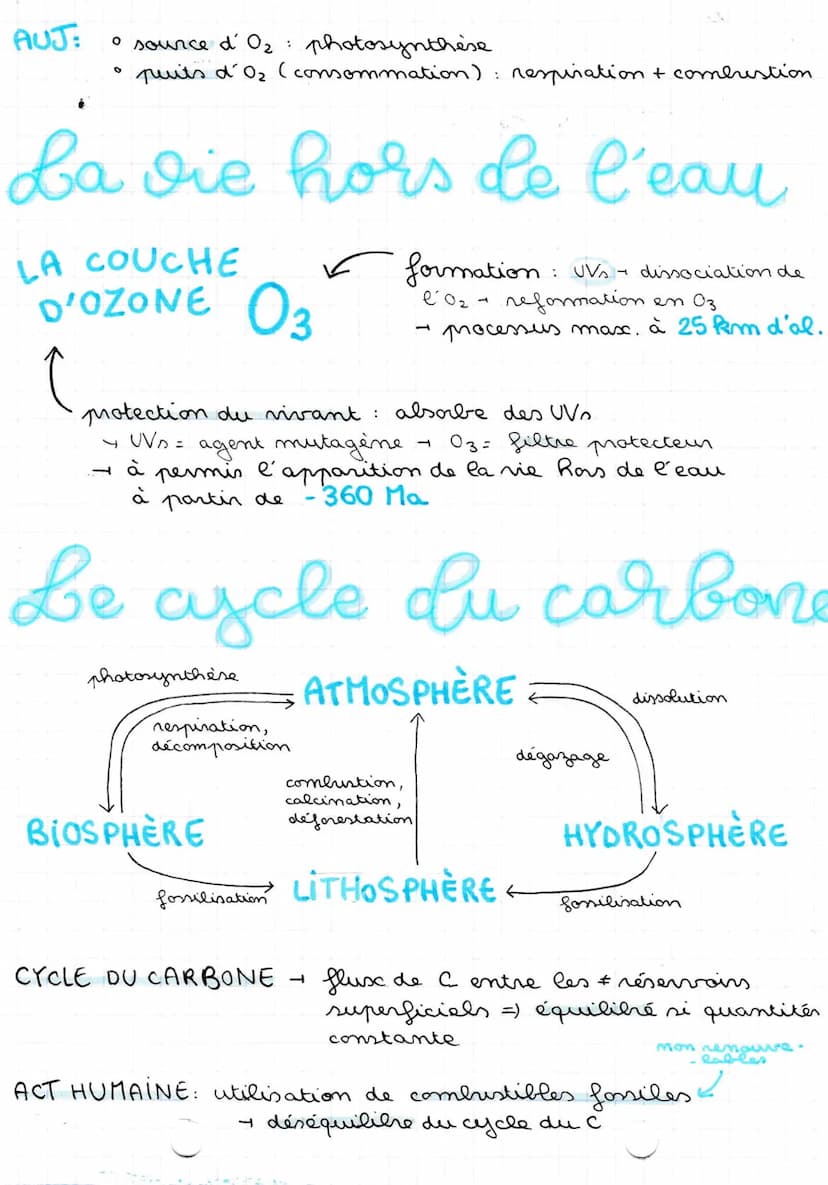 AUJ: ° source d'O₂ : photosynthèse
° puits d'O₂ (consommation) : respiration + combustion
La vie hors de l'eau
LA COUCHE
D'OZONE O₃
formation : UVs → dissociation de
l'O₂ → reformation en O₃
→ processus max. à 25 km d'al.
protection du vivant : absorbe des UVs
↳ UVs = agent mutagène → O₃ = filtre protecteur
→ à permis l'apparition de la vie hors de l'eau
à partir de - 360 Ma
Le cycle du carbone
photosynthèse
ATMOSPHÈRE
dissolution
respiration,
décomposition
dégazage
combustion,
calcination,
déforestation
BIOSPHÈRE
HYDROSPHÈRE
fossilisation
LITHOSPHÈRE
fossilisation
CYCLE DU CARBONE → flux de C entre les ≠ réservoirs
superficiels => équilibré si quantités
constante
non renouve-
-lables
ACT HUMAINE: utilisation de combustibles fossiles
→ déséquilibre du cycle du C